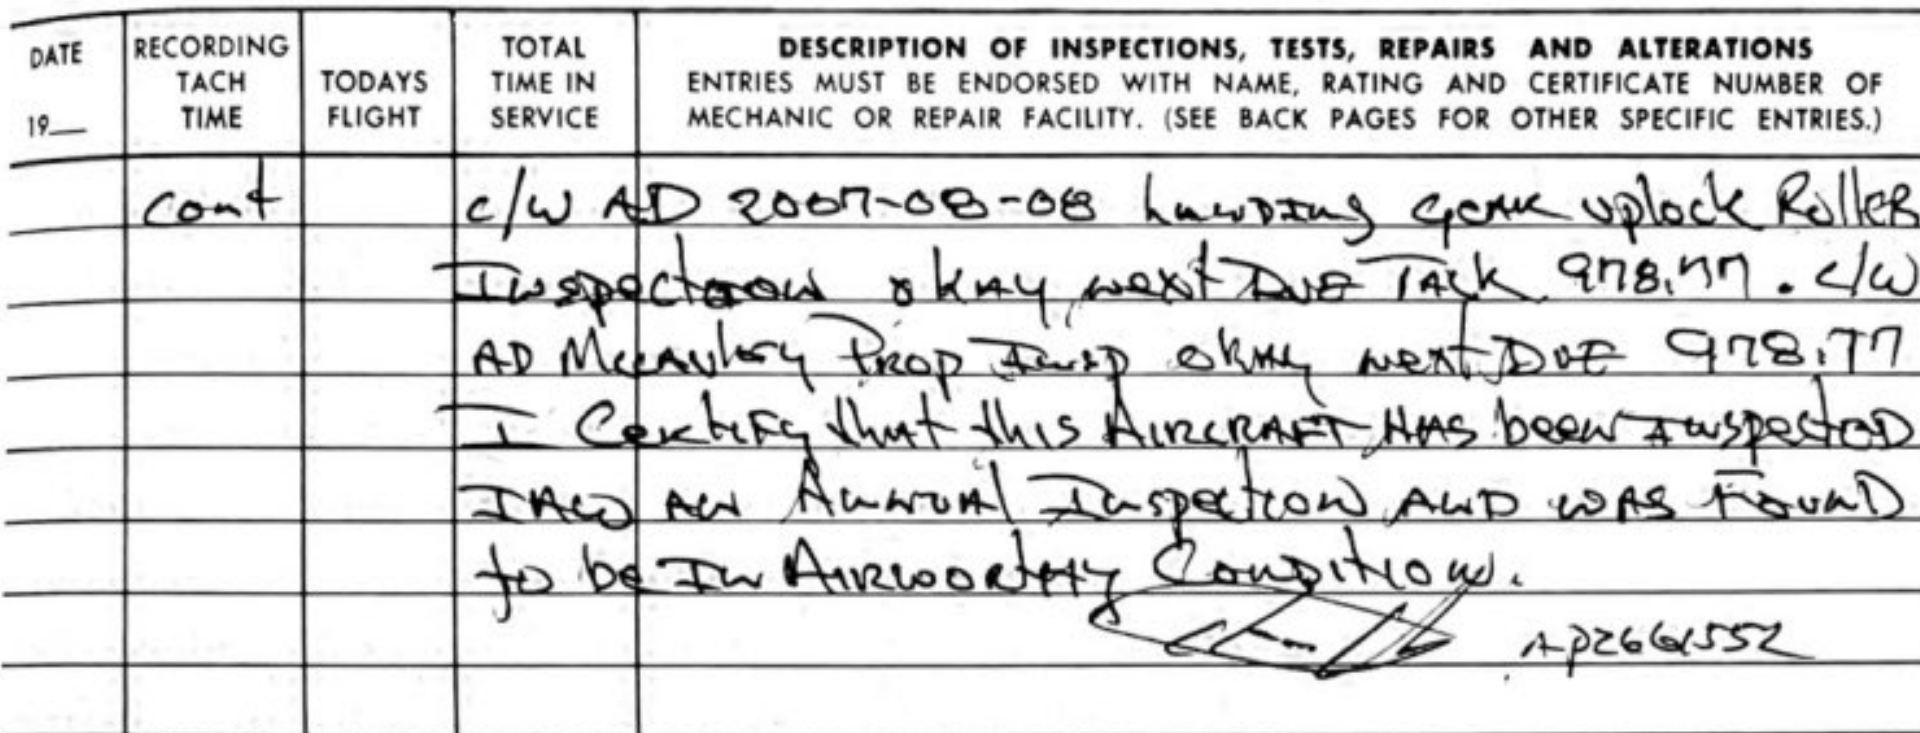 DATE
19__
RECORDING
TACH
TIME
TODAYS
FLIGHT
TOTAL
TIME IN
SERVICE
DESCRIPTION OF INSPECTIONS, TESTS, REPAIRS AND ALTERATIONS
ENTRIES MUST BE ENDORSED WITH NAME, RATING AND CERTIFICATE NUMBER OF
MECHANIC OR REPAIR FACILITY. (SEE BACK PAGES FOR OTHER SPECIFIC ENTRIES.)
cont c/w AD 2007-08-08 Landing gear uplock Roller
Inspection okay next Due Tack 978.77. c/w
AD McCauley Prop Insp okay next Due 978.77
I Certify that this Aircraft Has been Inspected
IAW an Annual Inspection and was Found
to be In Airworthy Condition.